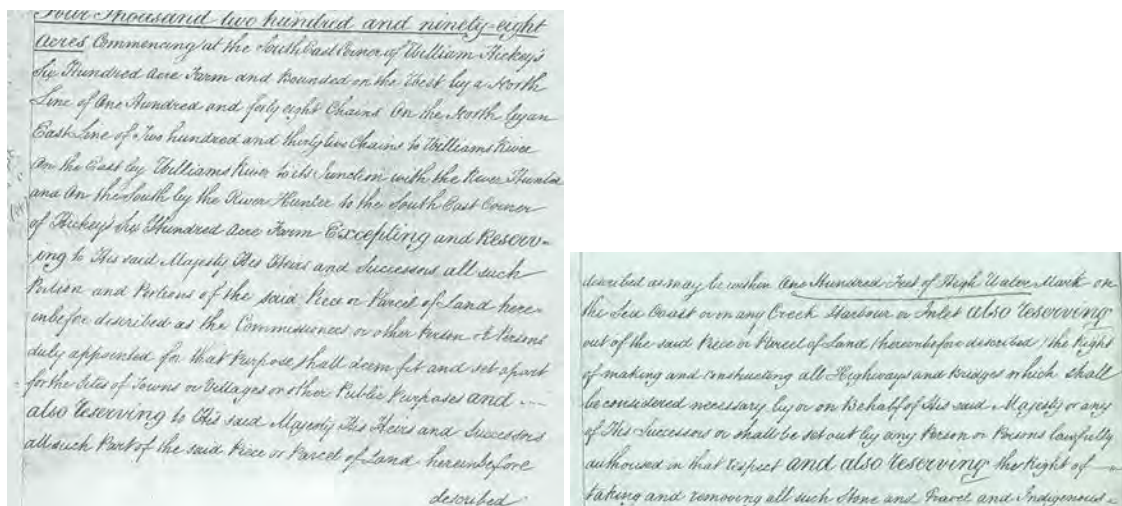 Four Thousand two hundred and ninety-eight
Acres Commencing at the South East Corner of William Hickey's
Six Hundred Acre Farm and Bounded on the West by a North
Line of One Hundred and forty eight Chains On the North by an
East Line of Two hundred and thirty two Chains to Williams River
On the East by Williams River to its Junction with the River Hunter
and On the South by the River Hunter to the South East Corner
of Hickey's Six Hundred Acre Farm Excepting and Reserv-
ing to His said Majesty His Heirs and Successors all such
Portion and Portions of the said Piece or Parcel of Land here-
inbefore described as the Commissioners or other Person or Persons
duly appointed for that Purpose shall deem fit and set apart
for the Sites of Towns or Villages or other Public Purposes and
also Reserving to His said Majesty His Heirs and Successors
all such Part of the said Piece or Parcel of Land hereinbefore
described
described as may be within One Hundred Feet of High Water Mark on
the Sea Coast or on any Creek Harbour or Inlet also Reserving
out of the said Piece or Parcel of Land (hereinbefore described) the Right
of making and constructing all Highways and Bridges which shall
be considered necessary by or on Behalf of His said Majesty or any
of His Successors or shall be set out by any Person or Persons lawfully
authorised in that respect and also Reserving the Right of
taking and removing all such Stone and Gravel and Indigenous